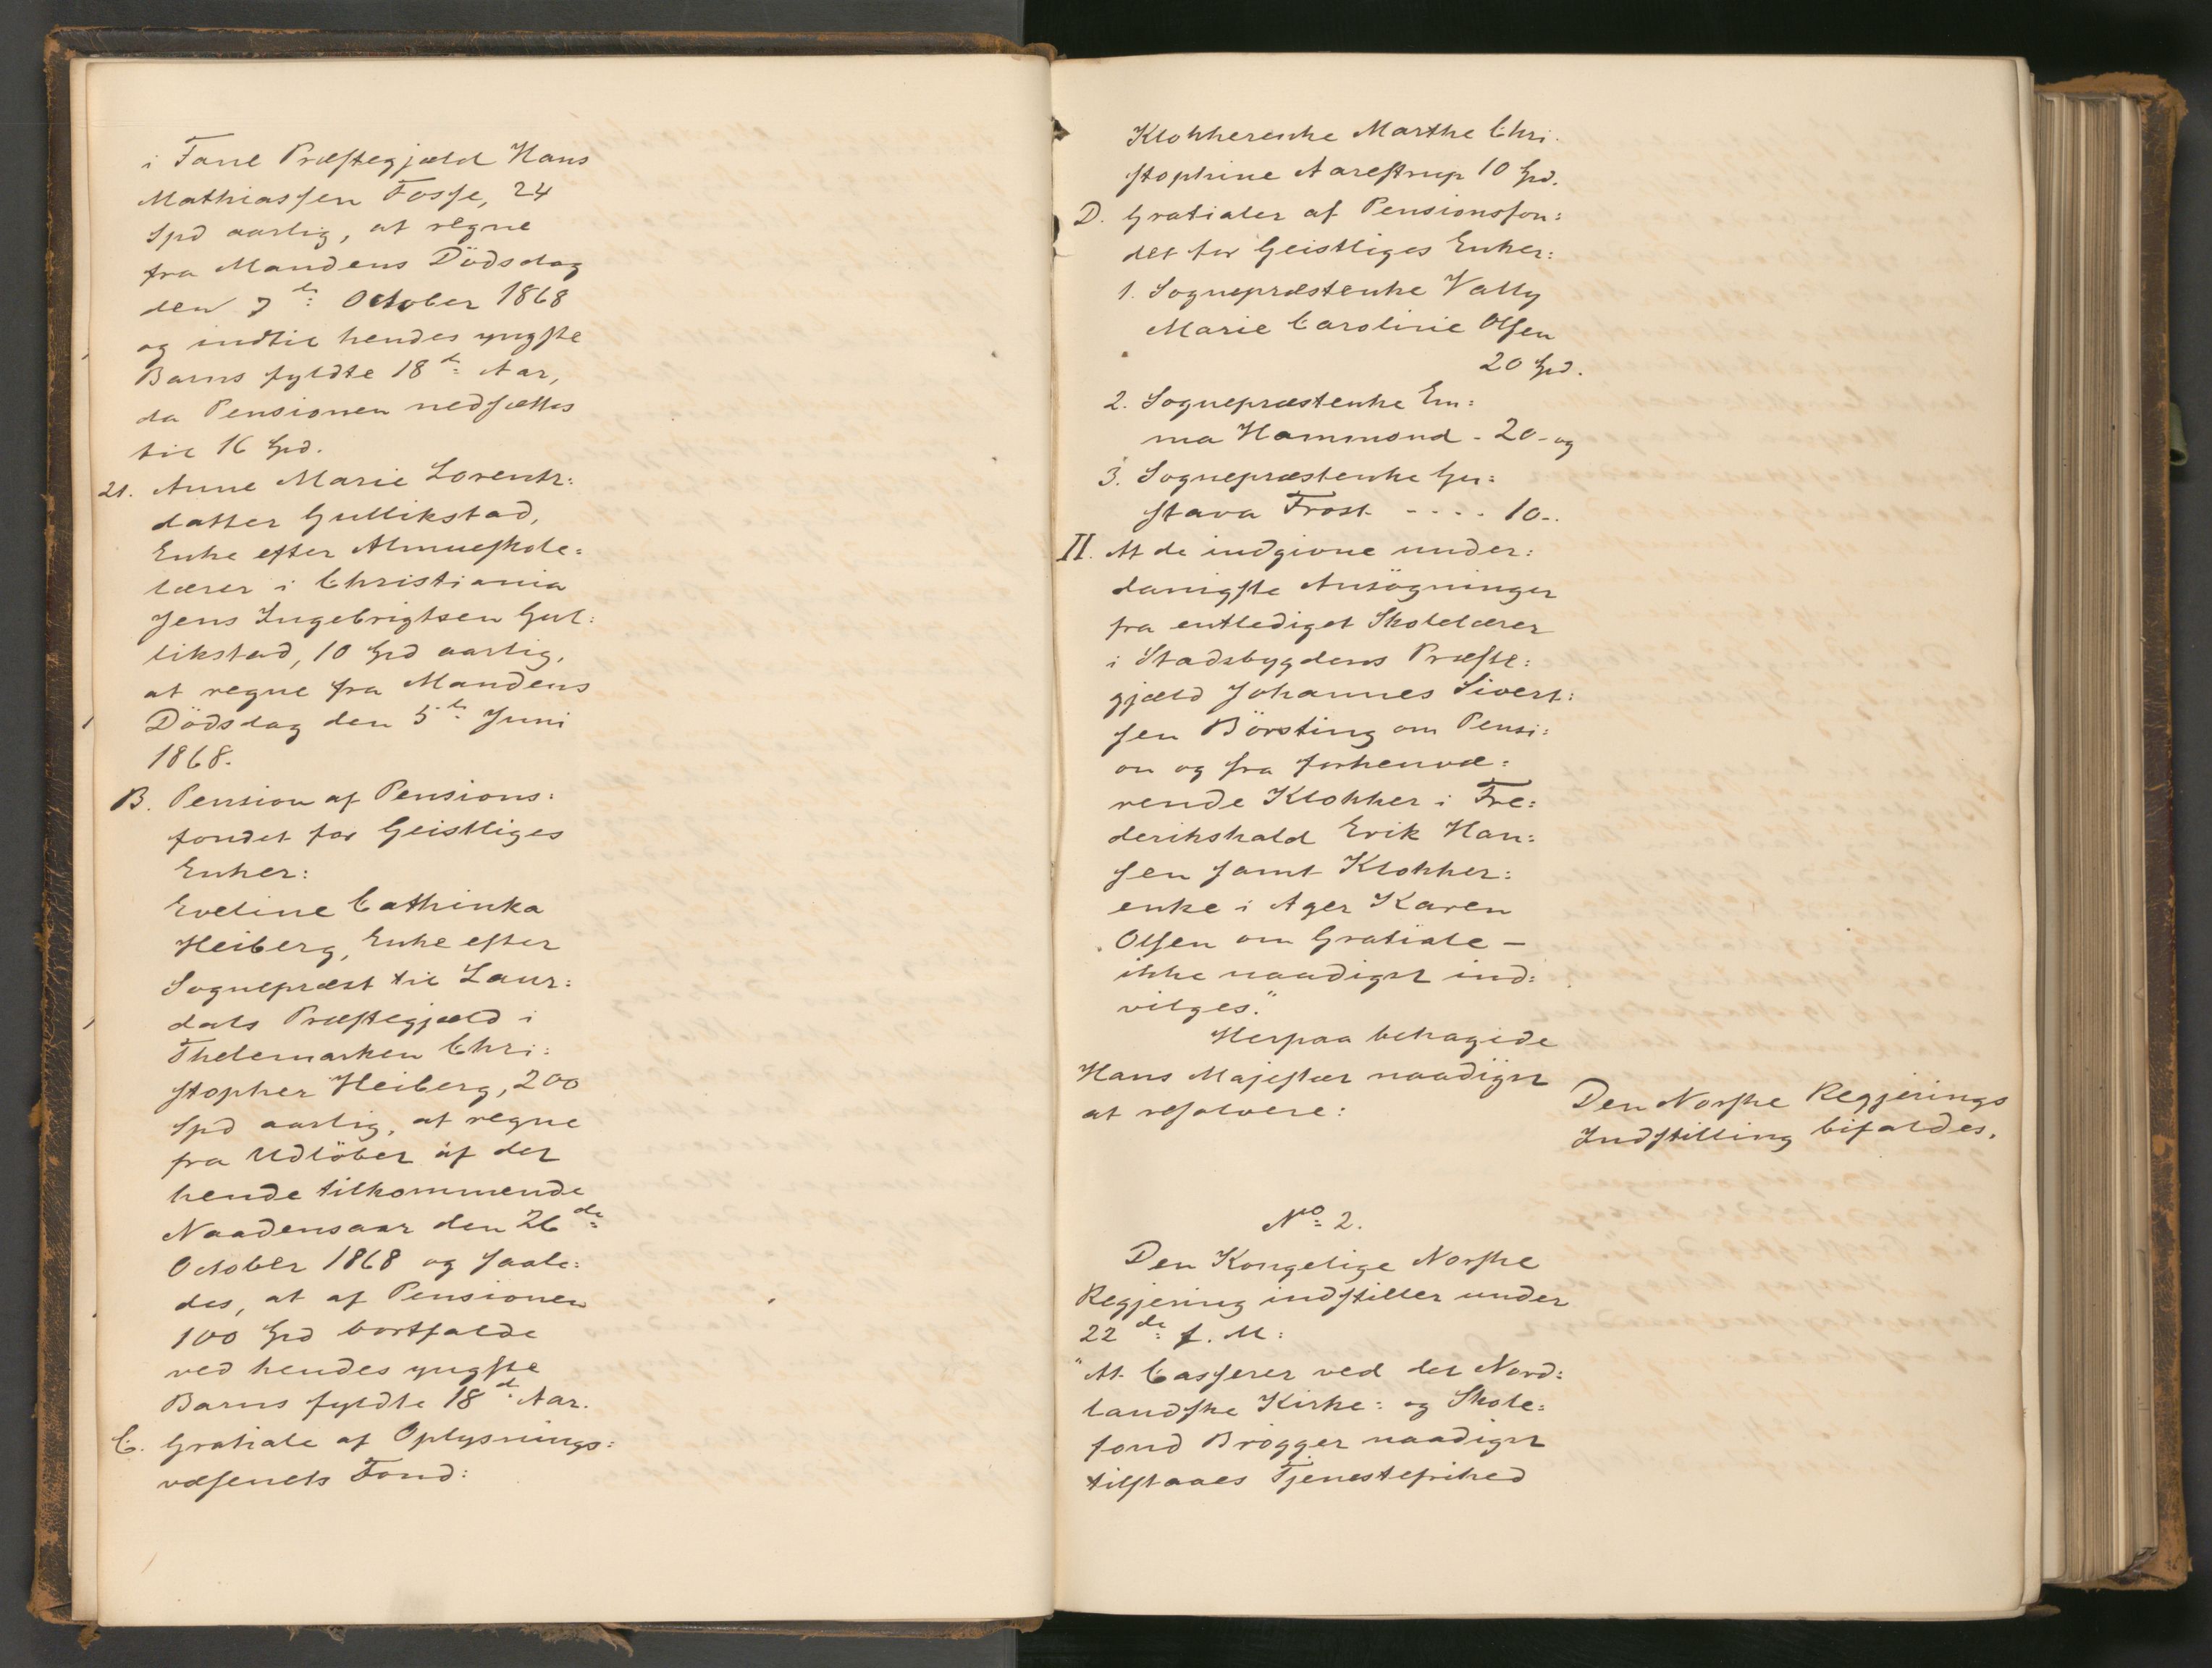 i Fane Præstegjæld Hans
Mathiassen Fosse, 24
Spd aarlig, at regne
fra Mandens Dödsdag
den 7de October 1868
og indtil hendes yngste
Barns fyldte 18de Aar,
da Pensionen nedsættes
til 16 Spd.
21. Anne Marie Lorentz:
datter Gullikstad,
Enke efter Almueskole:
lærer i Christiania
Jens Ingebrigtsen Gul:
likstad, 10 Spd aarlig,
at regne fra Mandens
Dödsdag den 5te Juni
1868.
B. Pension af Pensions:
fondet for Geistliges
Enker:
Eveline Cathinka
Heiberg, Enke efter
Sognepræst til Laur:
dals Præstegjæld i
Thelemarken Chri:
stopher Heiberg, 200
Spd aarlig, at regne
fra Udlöbet af det
hende tilkommende
Naadensaar den 26de
October 1868 og saale:
des, at af Pensionen
100 Spd bortfalde
ved hendes yngste
Barns fyldte 18de Aar.
C. Gratiale af Oplysnings:
væsenets Fond:
Klokkerenke Marthe Chri:
stophine Aarestrup 10 Spd.
D. Gratialer af Pensionsfon:
det for Geistliges Enker:
1. Sognepræstenke Vally
Marie Caroline Olsen
20 Spd.
2. Sognepræstenke Em:
ma Hammond - 20 - og
3. Sognepræstenke Gu:
stava Frost - - - - 10 -.
II. At de indgivne under:
danigste Ansögninger
fra entlediget Skolelærer
i Stadsbygdens Præste:
gjæld Johannes Sivert:
sen Börsting om Pensi:
on og fra forhenvæ:
rende Klokker i Fre:
derikshald Erik Han:
sen samt Klokker:
enke i Aker Karen
Olsen om Gratiale —
ikke naadigst ind:
vilges."
Herpaa behagede
Hans Majestæt naadigst
at resolvere:
Den Norske Regjerings
Indstilling bifaldes.
No: 2.
Den Kongelige Norske
Regjering indstiller under
22de f. M:
"At Casserer ved det Nord:
landske Kirke: og Skole:
fond Brögger naadigst
tilstaaes Tjenestefrihed